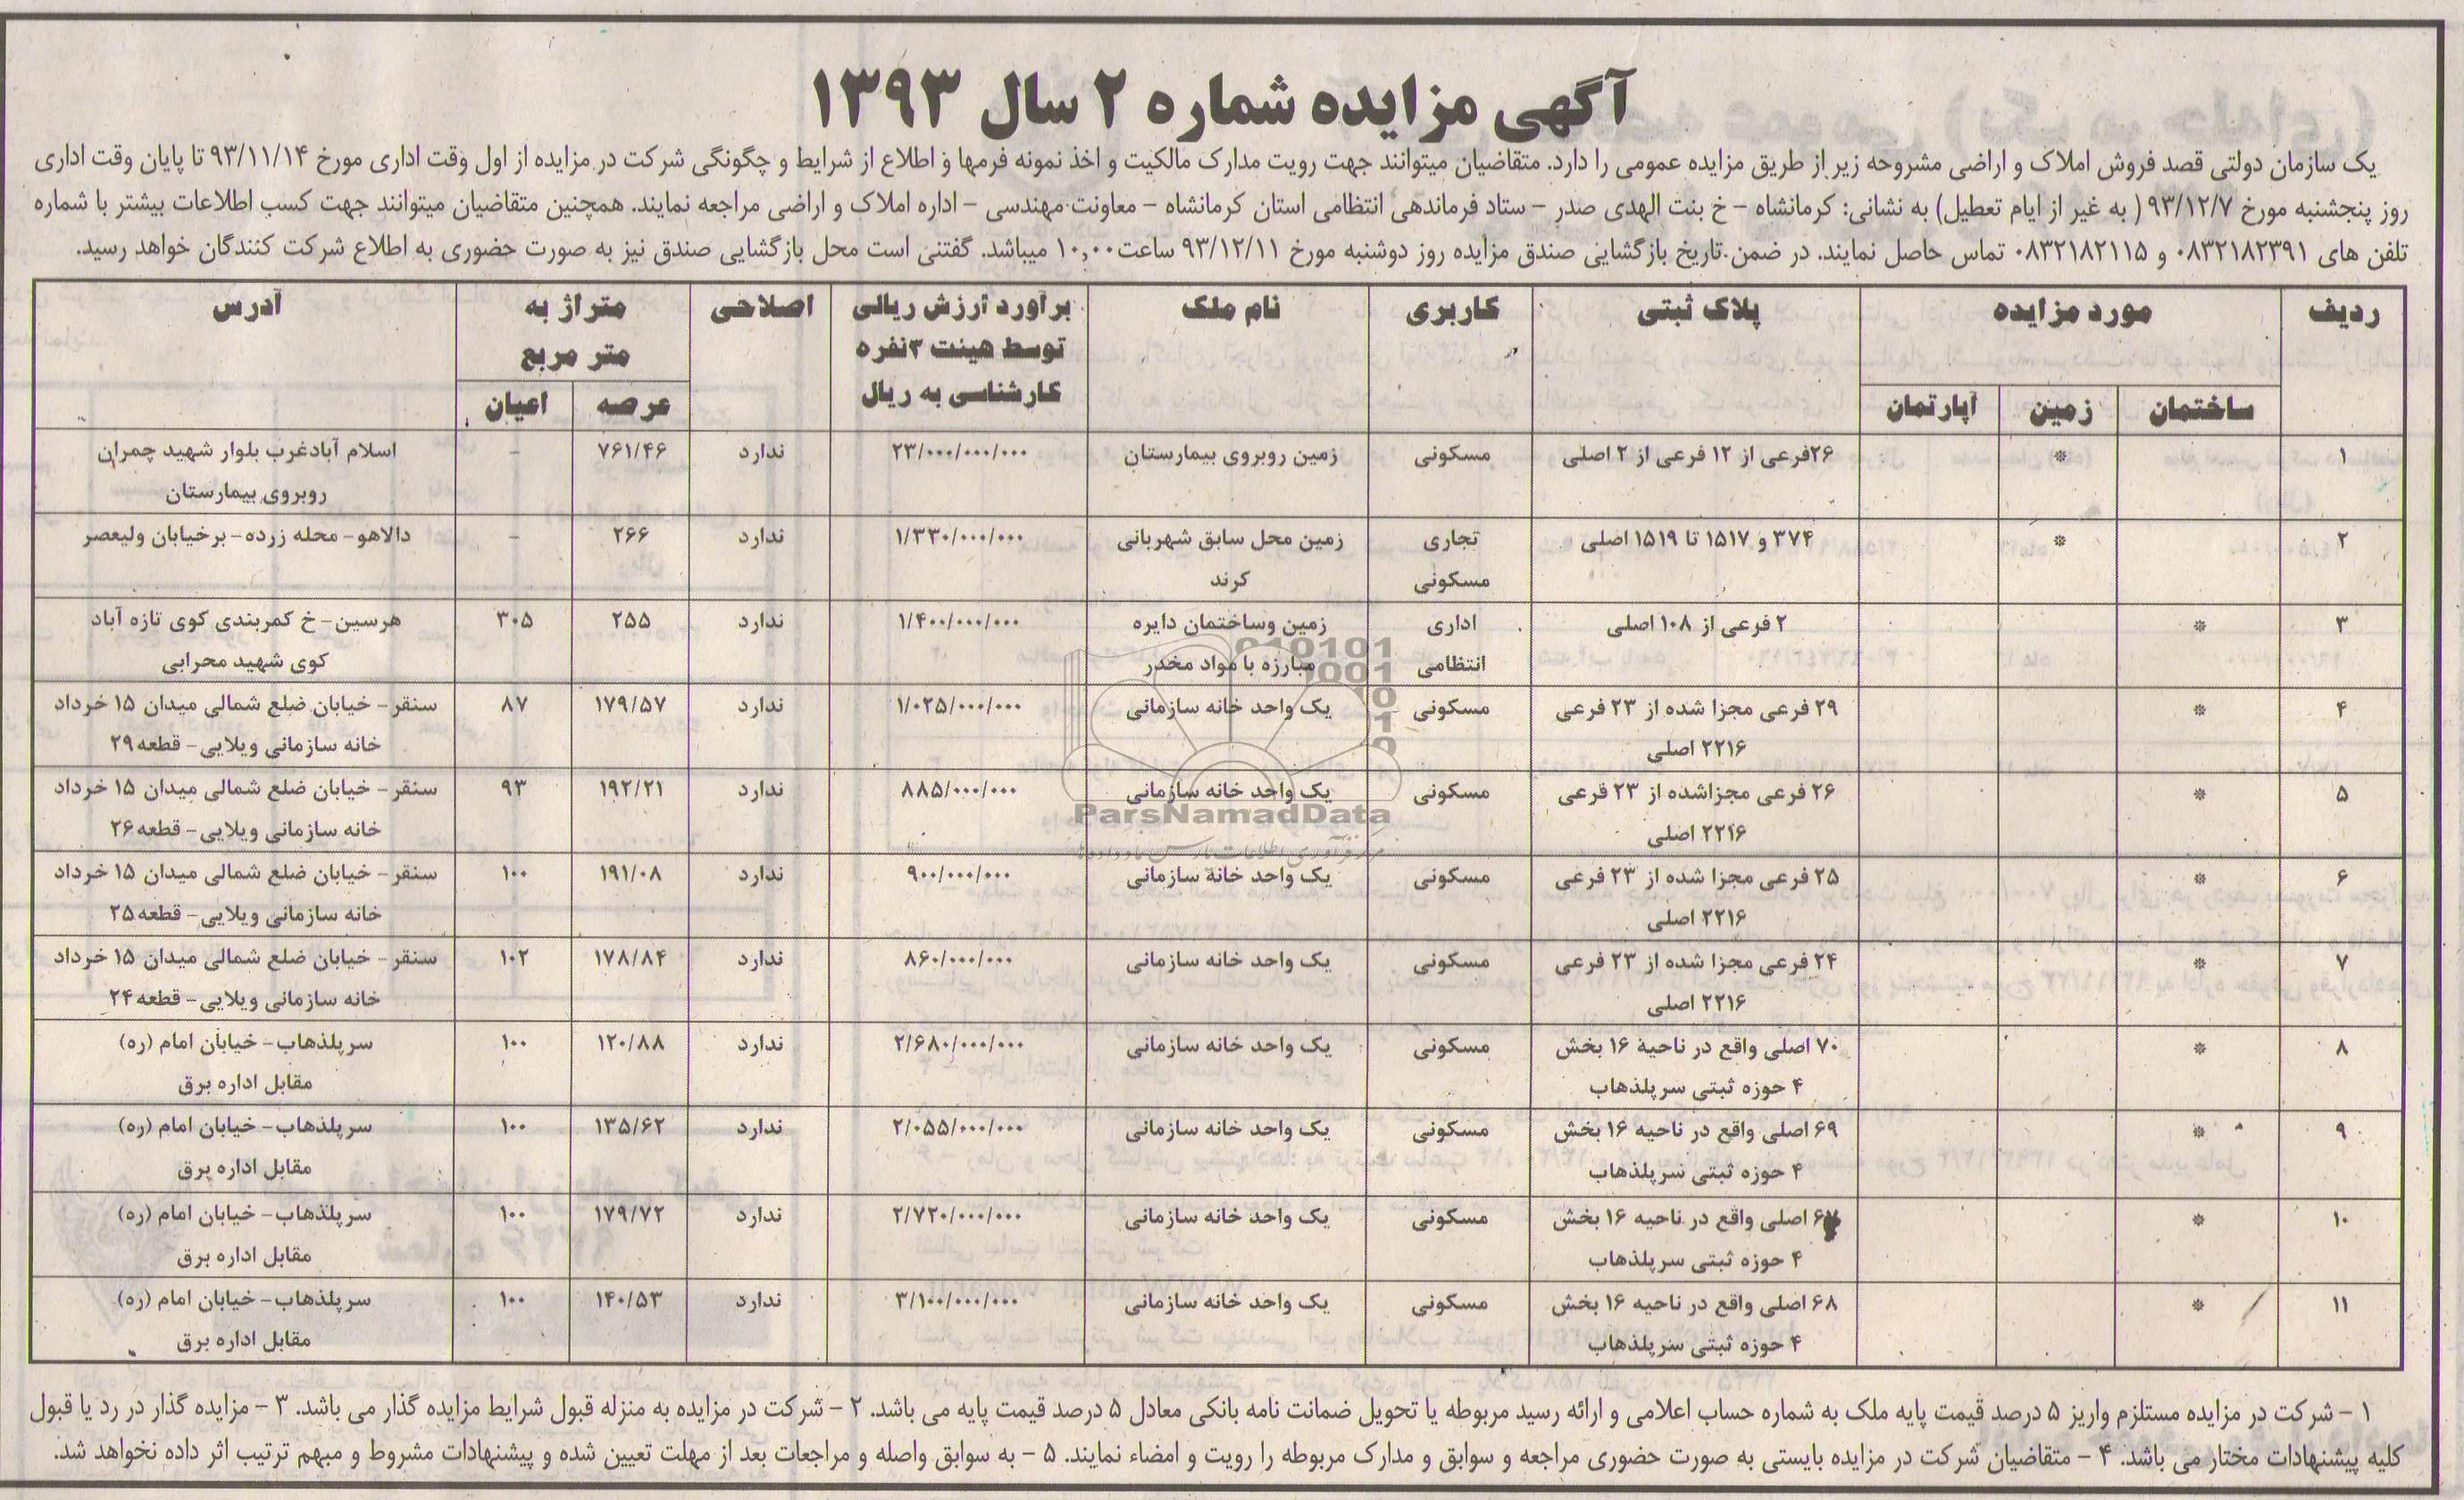 آگهی مزایده شماره ۲ سال ۱۳۹۳
یک سازمان دولتی قصد فروش املاک و اراضی مشروحه زیر از طریق مزایده عمومی را دارد. متقاضیان میتوانند جهت رویت مدارک مالکیت و اخذ نمونه فرمها و اطلاع از شرایط و چگونگی شرکت در مزایده از اول وقت اداری مورخ ۹۳/۱۱/۱۴ تا پایان وقت اداری
روز پنجشنبه مورخ ۹۳/۱۲/۷ ( به غیر از ایام تعطیل) به نشانی: کرمانشاه – خ بنت الهدی صدر – ستاد فرماندهی انتظامی استان کرمانشاه – معاونت مهندسی – اداره املاک و اراضی مراجعه نمایند. همچنین متقاضیان میتوانند جهت کسب اطلاعات بیشتر با شماره
تلفن های ۰۸۳۲۱۸۲۳۹۱ و ۰۸۳۲۱۸۲۱۱۵ تماس حاصل نمایند. در ضمن تاریخ بازگشایی صندق مزایده روز دوشنبه مورخ ۹۳/۱۲/۱۱ ساعت ۱۰,۰۰ میباشد. گفتنی است محل بازگشایی صندق نیز به صورت حضوری به اطلاع شرکت کنندگان خواهد رسید.
ردیف مورد مزایده پلاک ثبتی کاربری نام ملک برآورد ارزش ریالی اصلاحی متراژ به آدرس
توسط هیئت ۳نفره متر مربع
ساختمان زمین آپارتمان کارشناسی به ریال عرصه اعیان
۱ * ۲۶فرعی از ۱۲ فرعی از ۲ اصلی مسکونی زمین روبروی بیمارستان ۲۳/۰۰۰/۰۰۰/۰۰۰ ندارد ۷۶۱/۴۶ – اسلام آبادغرب بلوار شهید چمران
روبروی بیمارستان
۲ * ۳۷۴ و ۱۵۱۷ تا ۱۵۱۹ اصلی تجاری زمین محل سابق شهربانی ۱/۳۳۰/۰۰۰/۰۰۰ ندارد ۲۶۶ – دالاهو- محله زرده- برخیابان ولیعصر
مسکونی کرند
۳ * ۲ فرعی از ۱۰۸ اصلی اداری زمین وساختمان دایره ۱/۴۰۰/۰۰۰/۰۰۰ ندارد ۲۵۵ ۳۰۵ هرسین- خ کمربندی کوی تازه آباد
انتظامی مبارزه با مواد مخدر کوی شهید محرابی
۴ * ۲۹ فرعی مجزا شده از ۲۳ فرعی مسکونی یک واحد خانه سازمانی ۱/۰۲۵/۰۰۰/۰۰۰ ندارد ۱۷۹/۵۷ ۸۷ سنقر- خیابان ضلع شمالی میدان ۱۵ خرداد
۲۲۱۶ اصلی خانه سازمانی ویلایی- قطعه ۲۹
۵ * ۲۶ فرعی مجزاشده از ۲۳ فرعی مسکونی یک واحد خانه سازمانی ۸۸۵/۰۰۰/۰۰۰ ندارد ۱۹۲/۲۱ ۹۳ سنقر- خیابان ضلع شمالی میدان ۱۵ خرداد
۲۲۱۶ اصلی خانه سازمانی ویلایی- قطعه ۲۶
۶ * ۲۵ فرعی مجزا شده از ۲۳ فرعی مسکونی یک واحد خانه سازمانی ۹۰۰/۰۰۰/۰۰۰ ندارد ۱۹۱/۰۸ ۱۰۰ سنقر- خیابان ضلع شمالی میدان ۱۵ خرداد
۲۲۱۶ اصلی خانه سازمانی ویلایی- قطعه ۲۵
۷ * ۲۴ فرعی مجزا شده از ۲۳ فرعی مسکونی یک واحد خانه سازمانی ۸۶۰/۰۰۰/۰۰۰ ندارد ۱۷۸/۸۴ ۱۰۲ سنقر- خیابان ضلع شمالی میدان ۱۵ خرداد
۲۲۱۶ اصلی خانه سازمانی ویلایی- قطعه ۲۴
۸ * ۷۰ اصلی واقع در ناحیه ۱۶ بخش مسکونی یک واحد خانه سازمانی ۲/۶۸۰/۰۰۰/۰۰۰ ندارد ۱۲۰/۸۸ ۱۰۰ سرپلذهاب- خیابان امام (ره)
۴ حوزه ثبتی سرپلذهاب مقابل اداره برق
۹ * ۶۹ اصلی واقع در ناحیه ۱۶ بخش مسکونی یک واحد خانه سازمانی ۲/۰۵۵/۰۰۰/۰۰۰ ندارد ۱۳۵/۶۲ ۱۰۰ سرپلذهاب- خیابان امام (ره)
۴ حوزه ثبتی سرپلذهاب مقابل اداره برق
۱۰ * اصلی واقع در ناحیه ۱۶ بخش مسکونی یک واحد خانه سازمانی ۲/۷۲۰/۰۰۰/۰۰۰ ندارد ۱۷۹/۷۲ ۱۰۰ سرپلذهاب- خیابان امام (ره)
۴ حوزه ثبتی سرپلذهاب مقابل اداره برق
۱۱ * ۶۸ اصلی واقع در ناحیه ۱۶ بخش مسکونی یک واحد خانه سازمانی ۳/۱۰۰/۰۰۰/۰۰۰ ندارد ۱۴۰/۵۳ ۱۰۰ سرپلذهاب- خیابان امام (ره)
۴ حوزه ثبتی سرپلذهاب مقابل اداره برق
ParsNamadData
۱ – شرکت در مزایده مستلزم واریز ۵ درصد قیمت پایه ملک به شماره حساب اعلامی و ارائه رسید مربوطه یا تحویل ضمانت نامه بانکی معادل ۵ درصد قیمت پایه می باشد. ۲ – شرکت در مزایده به منزله قبول شرایط مزایده گذار می باشد. ۳ – مزایده گذار در رد یا قبول
کلیه پیشنهادات مختار می باشد. ۴ – متقاضیان شرکت در مزایده بایستی به صورت حضوری مراجعه و سوابق و مدارک مربوطه را رویت و امضاء نمایند. ۵ – به سوابق واصله و مراجعات بعد از مهلت تعیین شده و پیشنهادات مشروط و مبهم ترتیب اثر داده نخواهد شد.